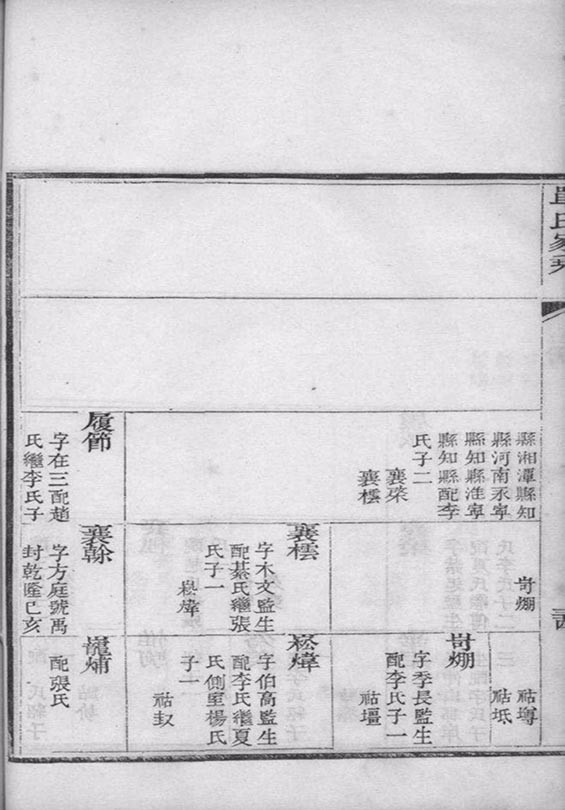 氏家乘
縣湘潭縣知
縣河南永寧
縣知縣淮寧
縣知縣配李
氏子二
襄橤
襄橒
履節
字在三配趙
氏繼李氏子
岢㷯
襄橒
字木文監生
配綦氏繼張
氏子一
崧煒
襄榦
字方庭號禹
封乾隆己亥
祜坻
岢㷯
字季長監生
配李氏子一
祜壇
崧煒
字伯高監生
配李氏繼夏
氏側室楊氏
子二
祜㕛
配張氏